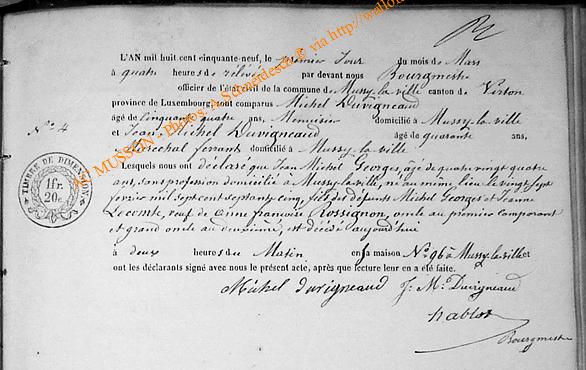 L'AN mil huit cent cinquante-neuf, le premier Jour du mois de Mars
à quatre heures de rélévée par devant nous Bourgmestre
officier de l'état civil de la commune de Mussy-la-ville canton de Virton
province de Luxembourg, sont comparus Michel Duvigneaud
âgé de Cinquante quatre ans, Menuisier domicilié à Mussy-la-ville
N° 4
et Jean Michel Duvigneaud âgé de quarante ans,
Marechal ferrant domicilié à Mussy-la-ville
Lesquels nous ont déclaré que Jean Michel Georges, âgé de quatre vingt quatre
ans, sans profession domicilié à Mussy-la-ville, né au même lieu le vingt sept
février mil sept cent septante cinq, fils des défunts Michel Georges et Jeanne
Lecomte, veuf de Anne françoise Rossignon, oncle au premier comparant
et grand oncle au deuxième, est décédé aujourd'hui
à deux heures du Matin en sa maison N° 96 à Mussy-la-ville et
ont les déclarants signé avec nous le présent acte, après que lecture leur en a été faite.
Michel duvigneaud J. M. Duvigneaud
Bourgmestre
TIMBRE DE DIMENSION
1fr.
20c.
MUSSON - Photos A. Scheidesch © via http://wallon